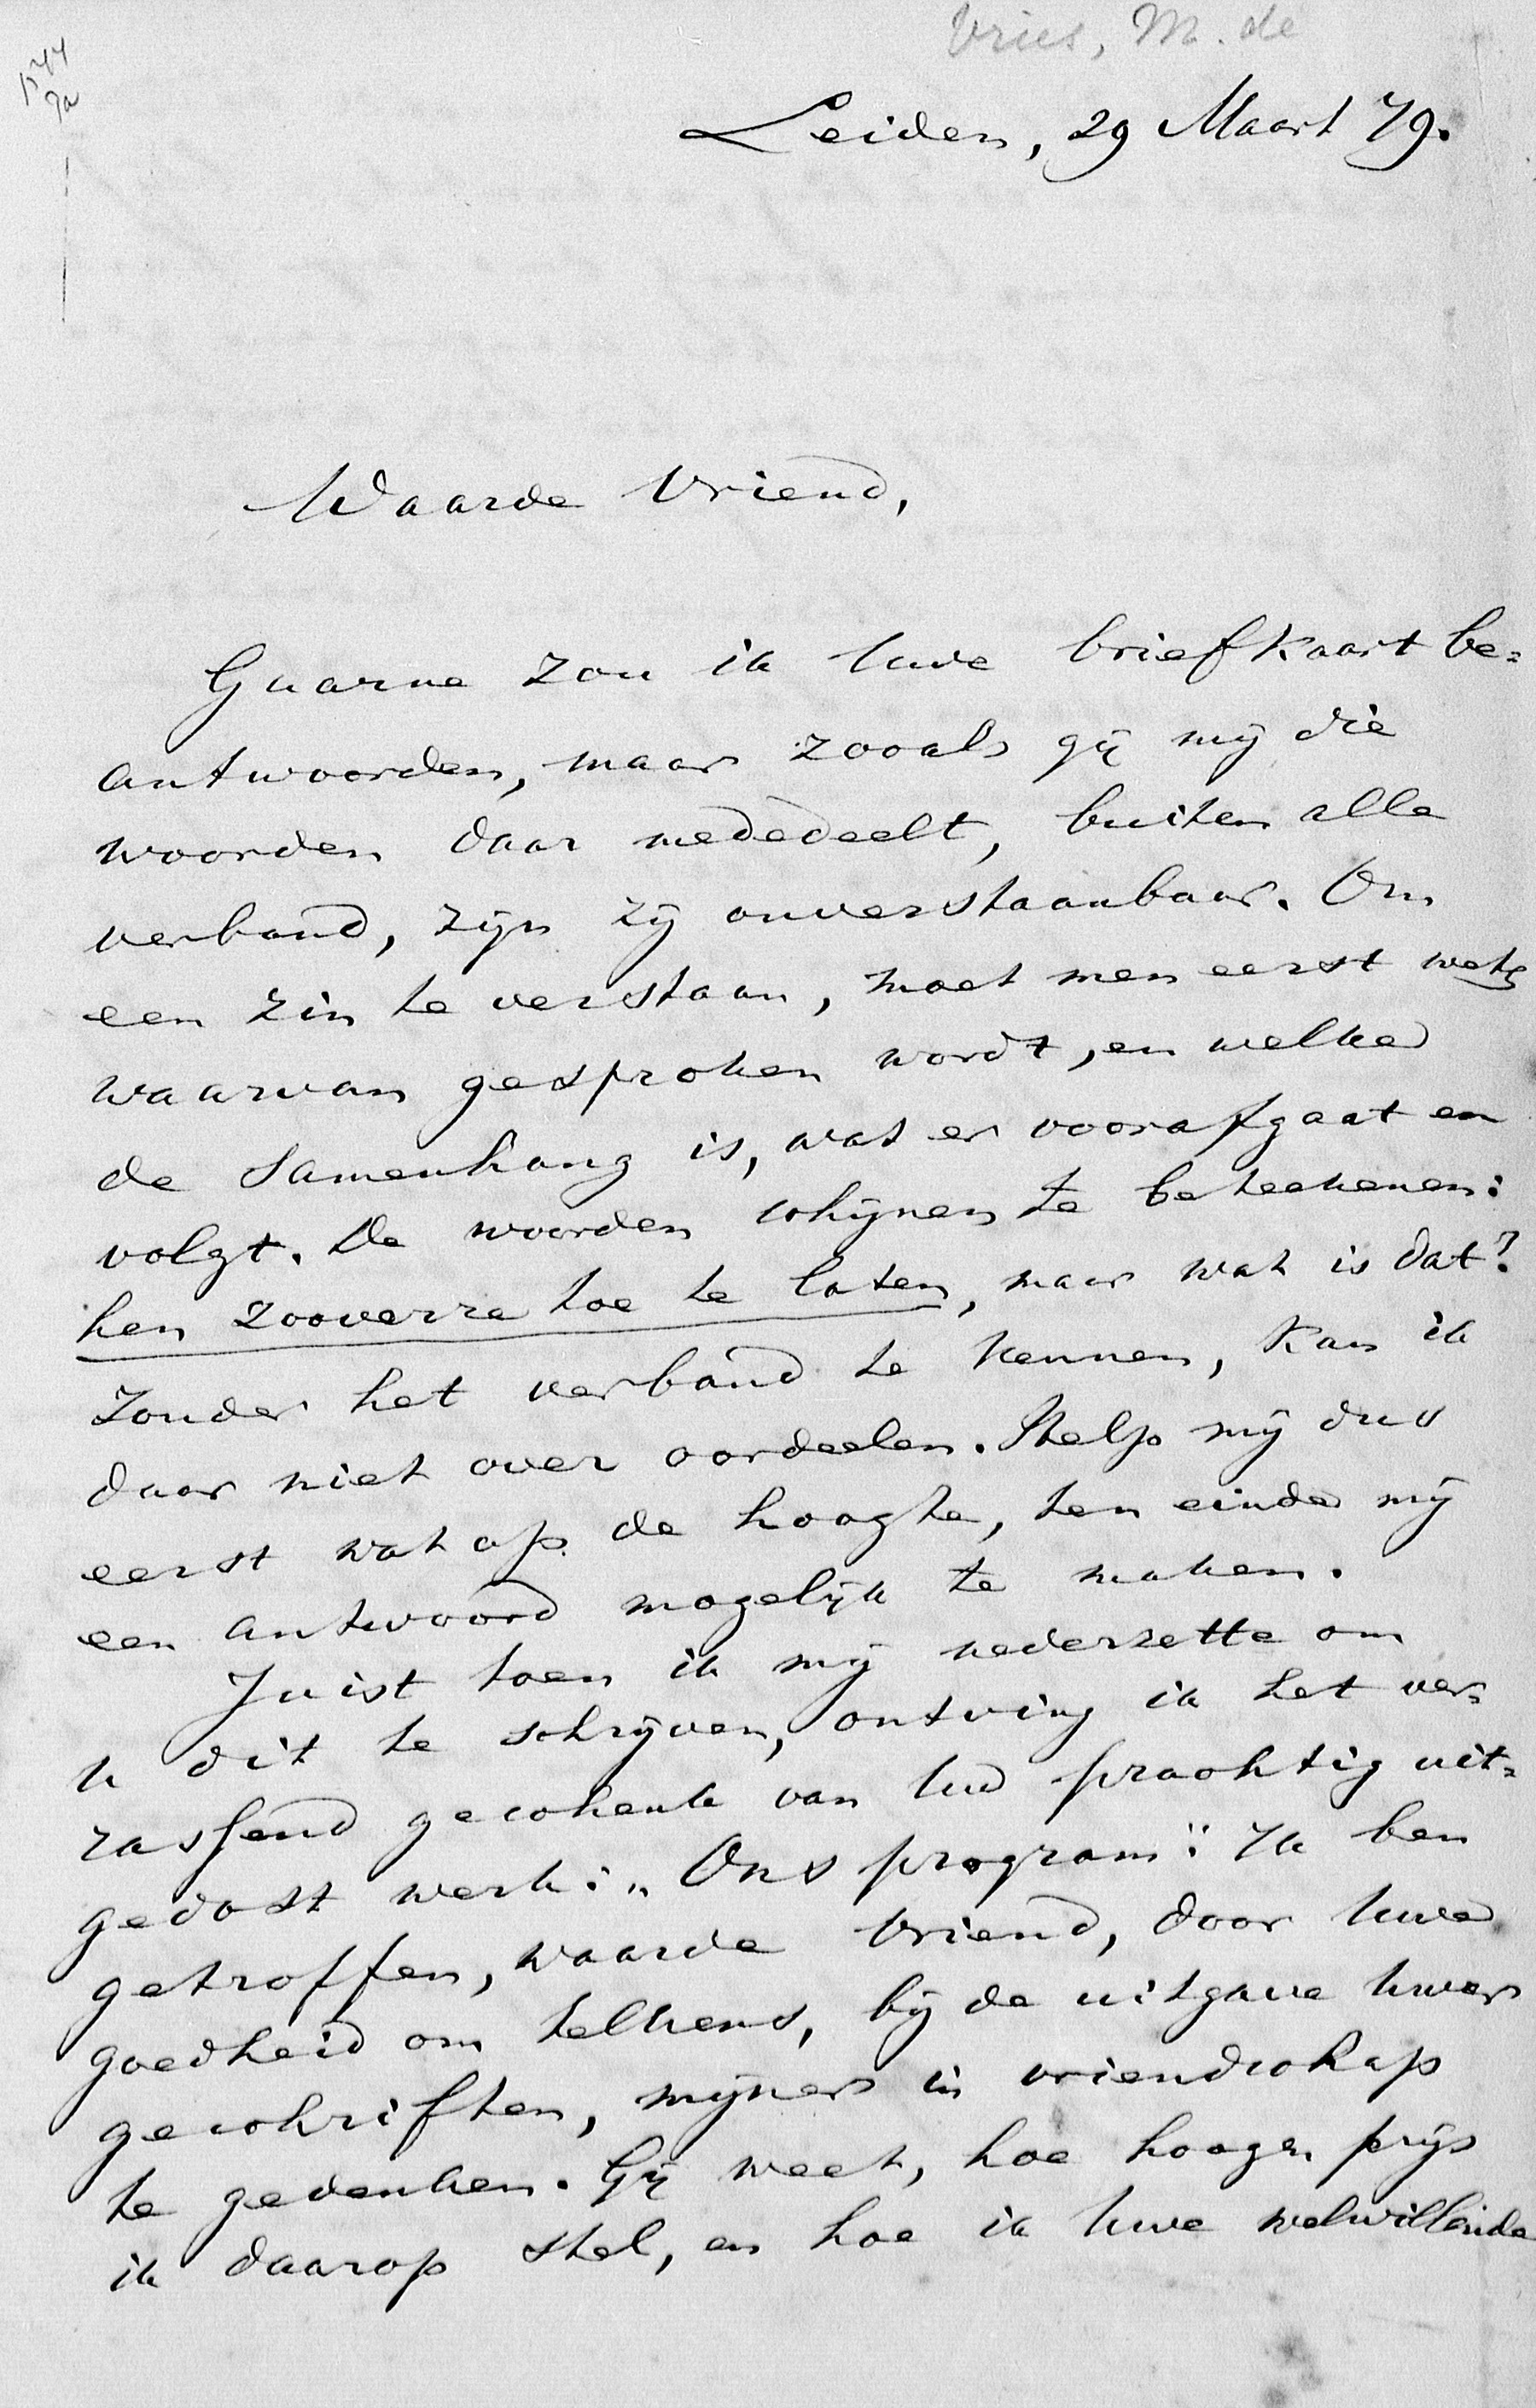 Vries, M. de
1544
7a
Leiden, 29 Maart 79.
Waarde Vriend,
Gaarne zou ik Uwe briefkaart be=
antwoorden, maar zooals gij mij die
woorden daar mededeelt, buiten alle
verband, zijn zij onverstaanbaar. Om
een zin te verstaan, moet men eerst weten
waarvan gesproken wordt, en welke
de samenhang is, wat er voorafgaat en
volgt. De woorden schijnen te beteekenen:
hen zooverre toe te laten, maar wat is dat?
Zonder het verband te kennen, kan ik
daar niet over oordeelen. Help mij dus
eerst wat op de hoogte, ten einde mij
een antwoord mogelijk te maken.
Juist toen ik mij nederzette om
U dit te schrijven, ontving ik het ver=
rassend geschenk van Uw prachtig uit=
gedost werk: „Ons program". Ik ben
getroffen, waarde Vriend, door Uwe
goedheid om telkens, bij de uitgave Uwer
geschriften, mijner in vriendschap
te gedenken. Gij weet, hoe hoogen prijs
ik daarop stel, en hoe ik Uwe welwillende